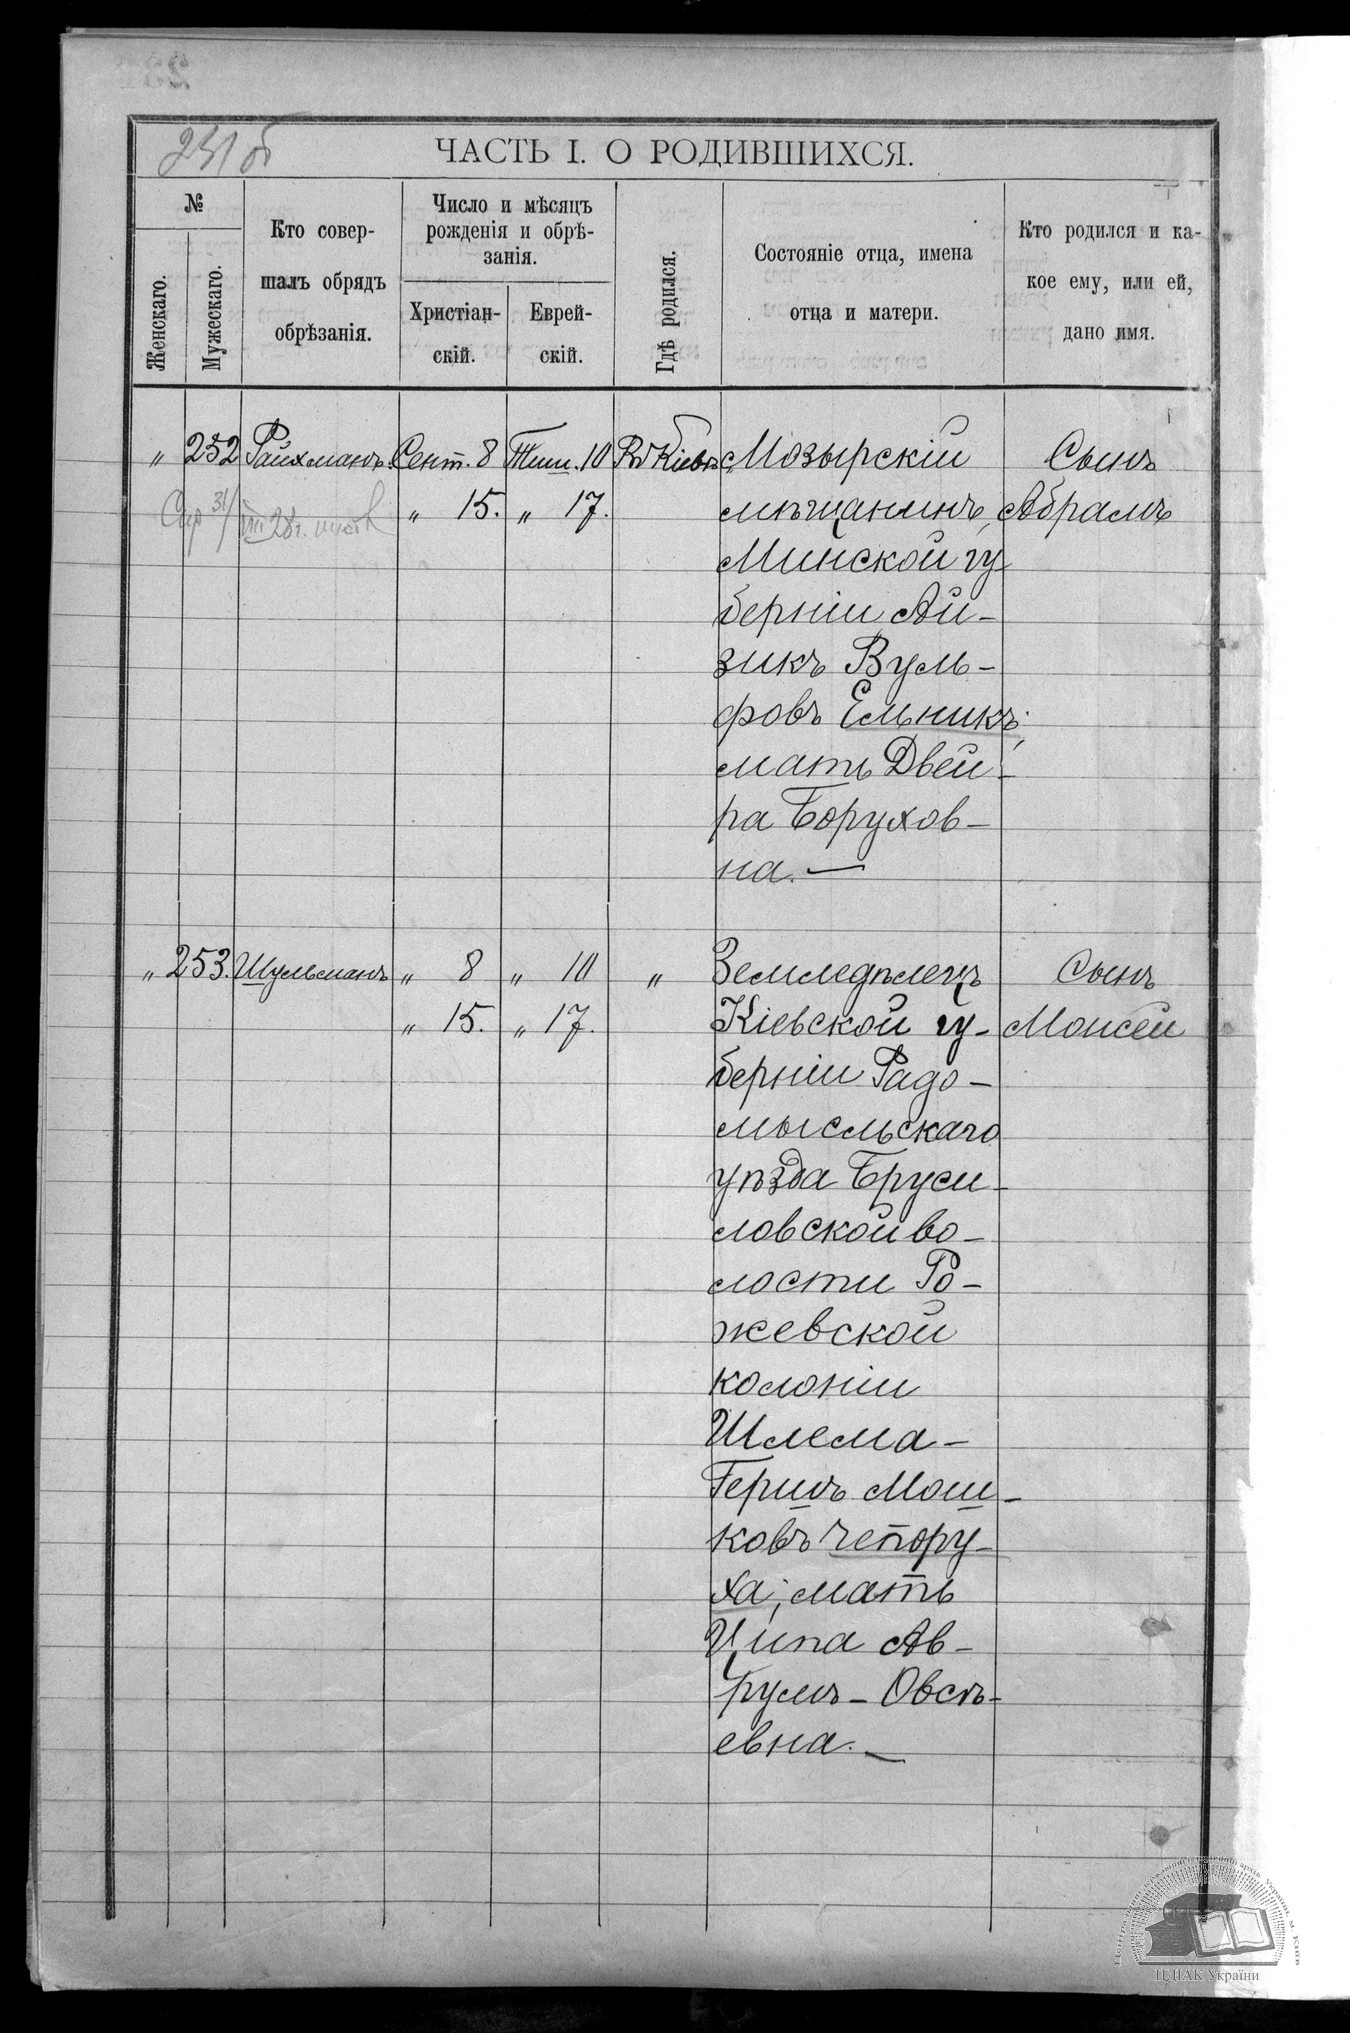 231 об
ЧАСТЬ I. О РОДИВШИХСЯ.
№
Женскаго.
Мужескаго.
Кто совер-
шалъ обрядъ
обрѣзанія.
Число и мѣсяцъ
рожденія и обрѣ-
занія.
Христіан-
скій.
Еврей-
скій.
Гдѣ родился.
Состояніе отца, имена
отца и матери.
Кто родился и ка-
кое ему, или ей,
дано имя.
„ 252 Райхманъ. Сент. 8 Тиш. 10 Въ Кіевѣ Мозырскій Сынъ
„ 15. „ 17. мѣщанинъ, Абрамъ
Минской гу-
берніи Ай-
зикъ Вуль-
фовъ Ельникъ;
мать Двей-
ра Борухов-
на. —
„ 253. Шульманъ „ 8 „ 10 „ Земледѣлецъ Сынъ
„ 15. „ 17. Кіевской гу- Моисей
берніи Радо-
мысльскаго
уѣзда Бруси-
ловской во-
лости Ро-
жевской
колоніи
Шлема-
Гершъ Мош-
ковъ Чепору-
ха; мать
Ципа Ав-
румъ-Овсѣ-
евна. —
ЦДІАК України